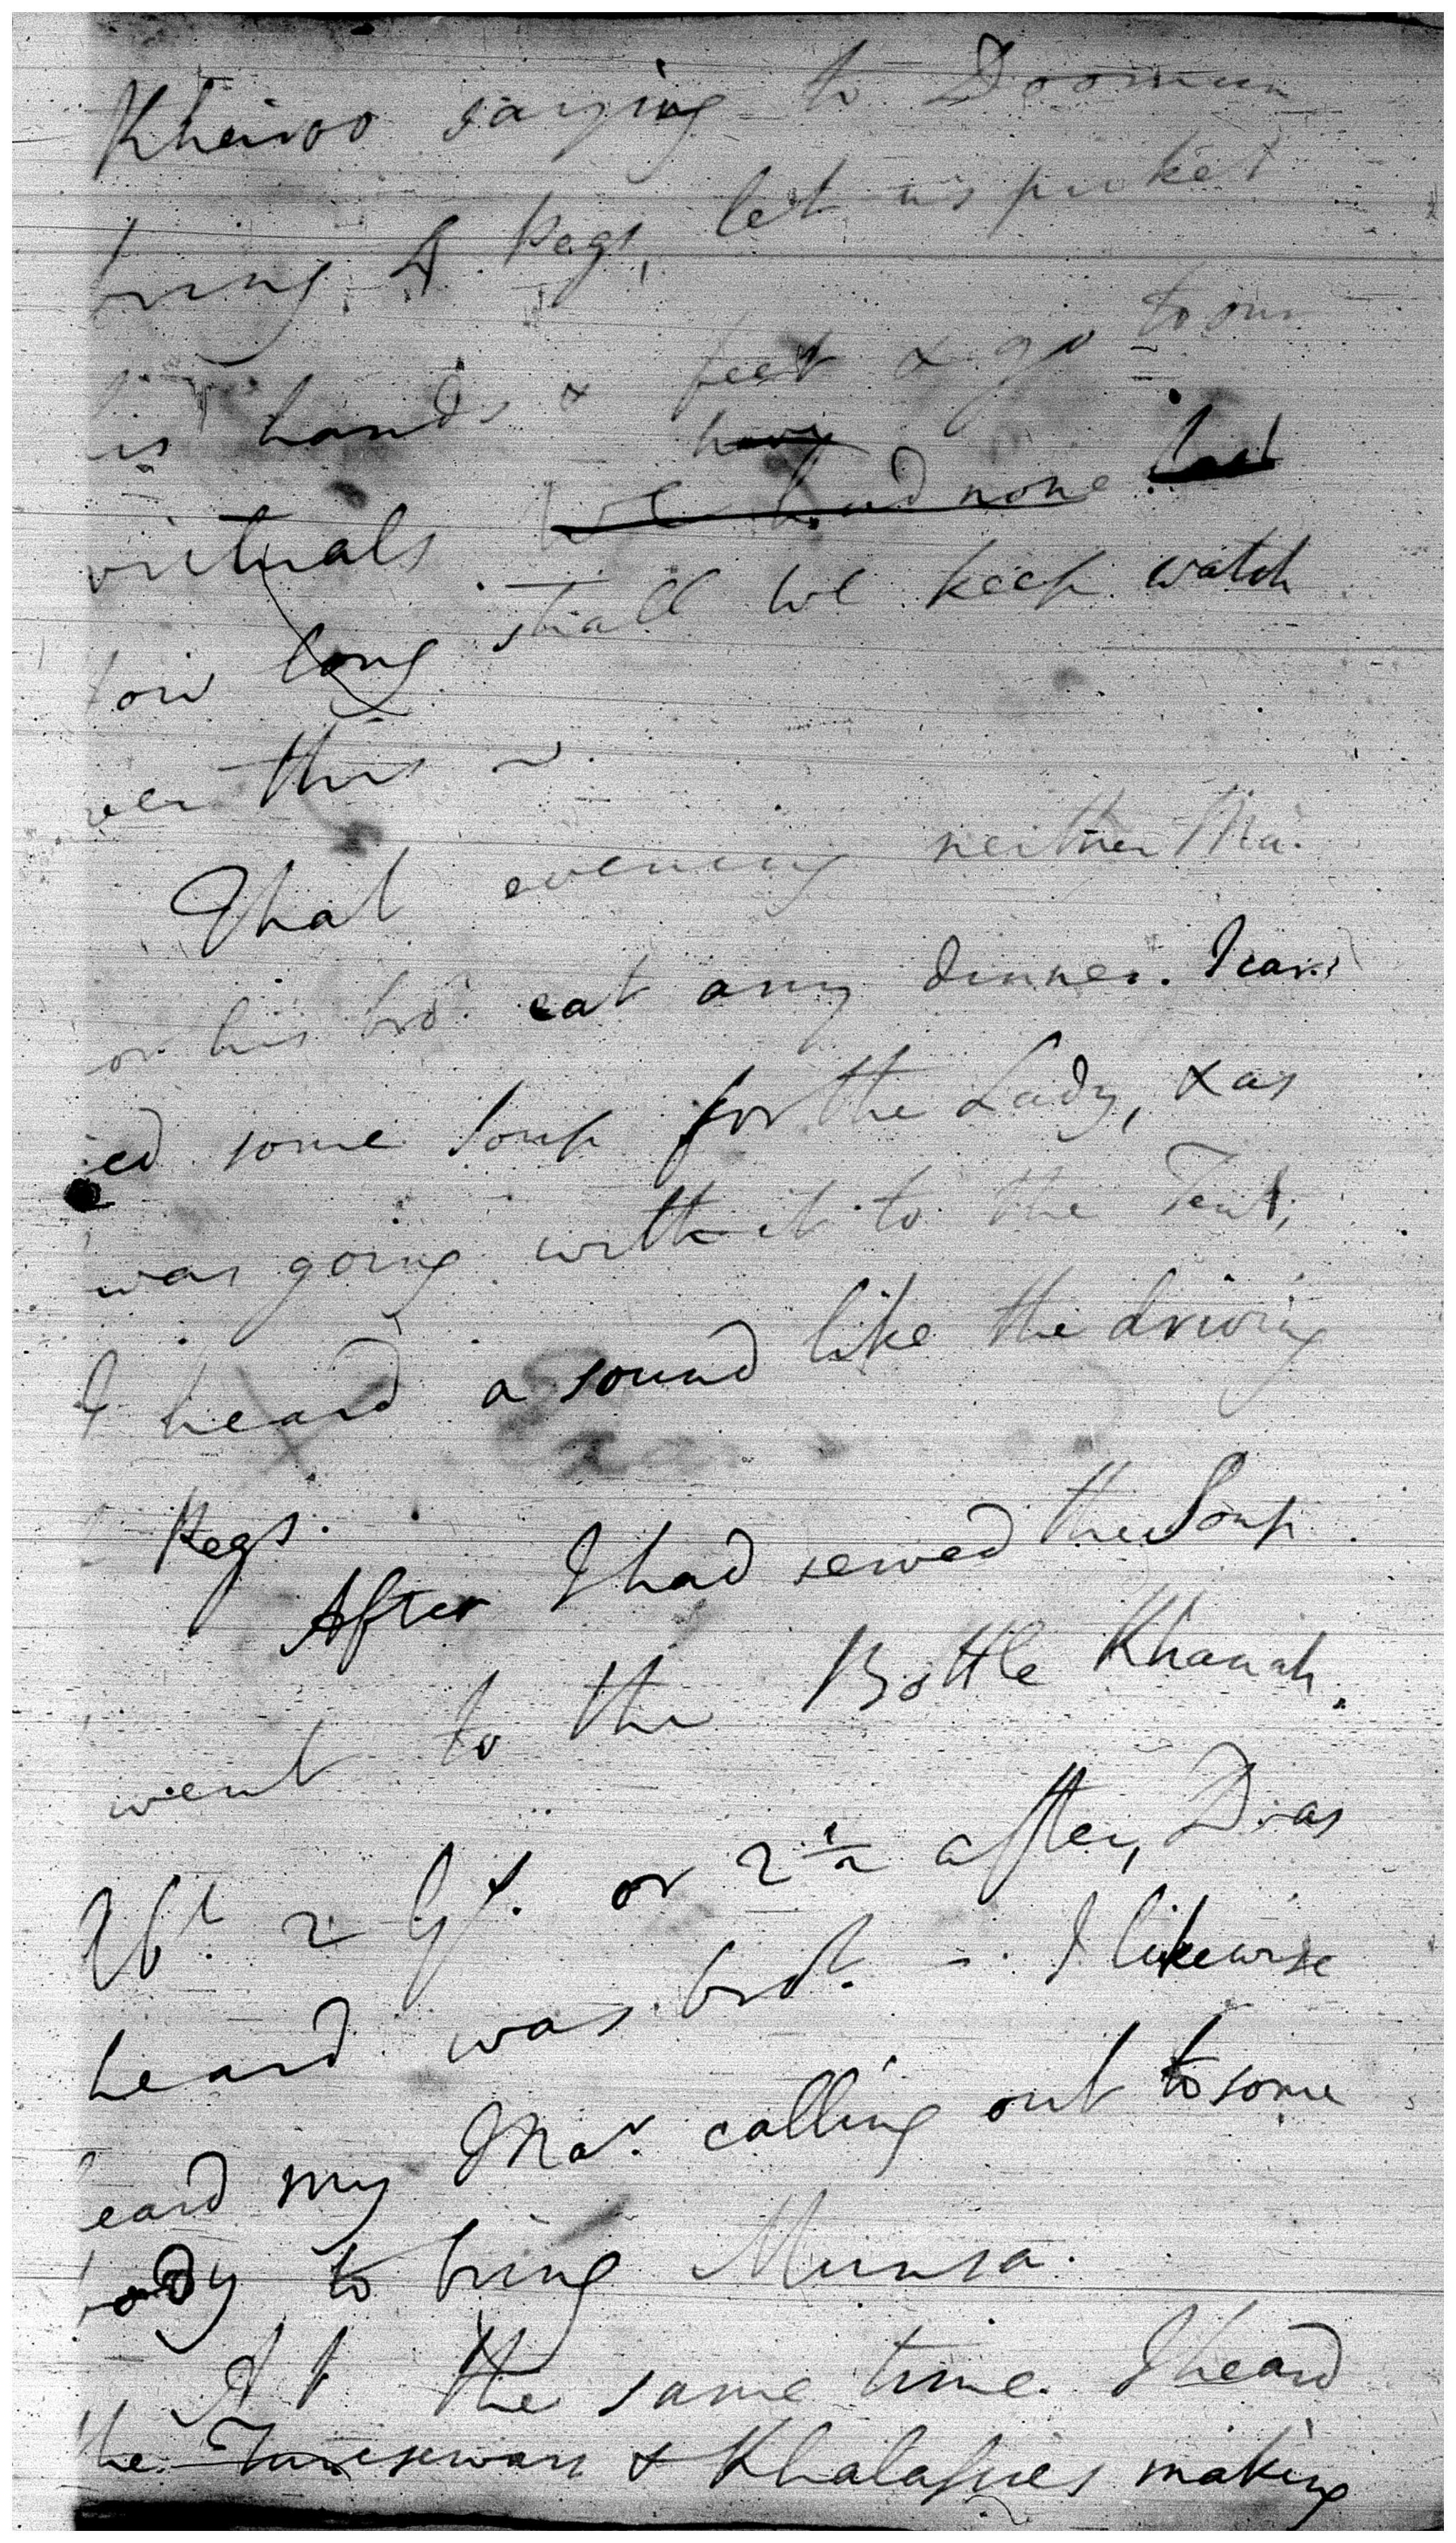 Kheiroo saying to Doomun
bring 4 Pegs, let us picket
his hands & feet & go to our
have
victuals we had none
how long shall we keep watch
over this
That evening neither Mar.
or his bro.r eat any dinner. I carri
ed some Soup for the Lady, & as
was going with it to the Tent,
I heard a sound like the driving
Pegs.
After I had served the Soup
went to the Bottle Khanah.
Ab.t 2 G.s or 2 1/2 after, Dias
heard was bro.t - I likewise
heard my Mar. calling out to some
body to bring Munsa.
At the same time I heard
the & Khalasies making